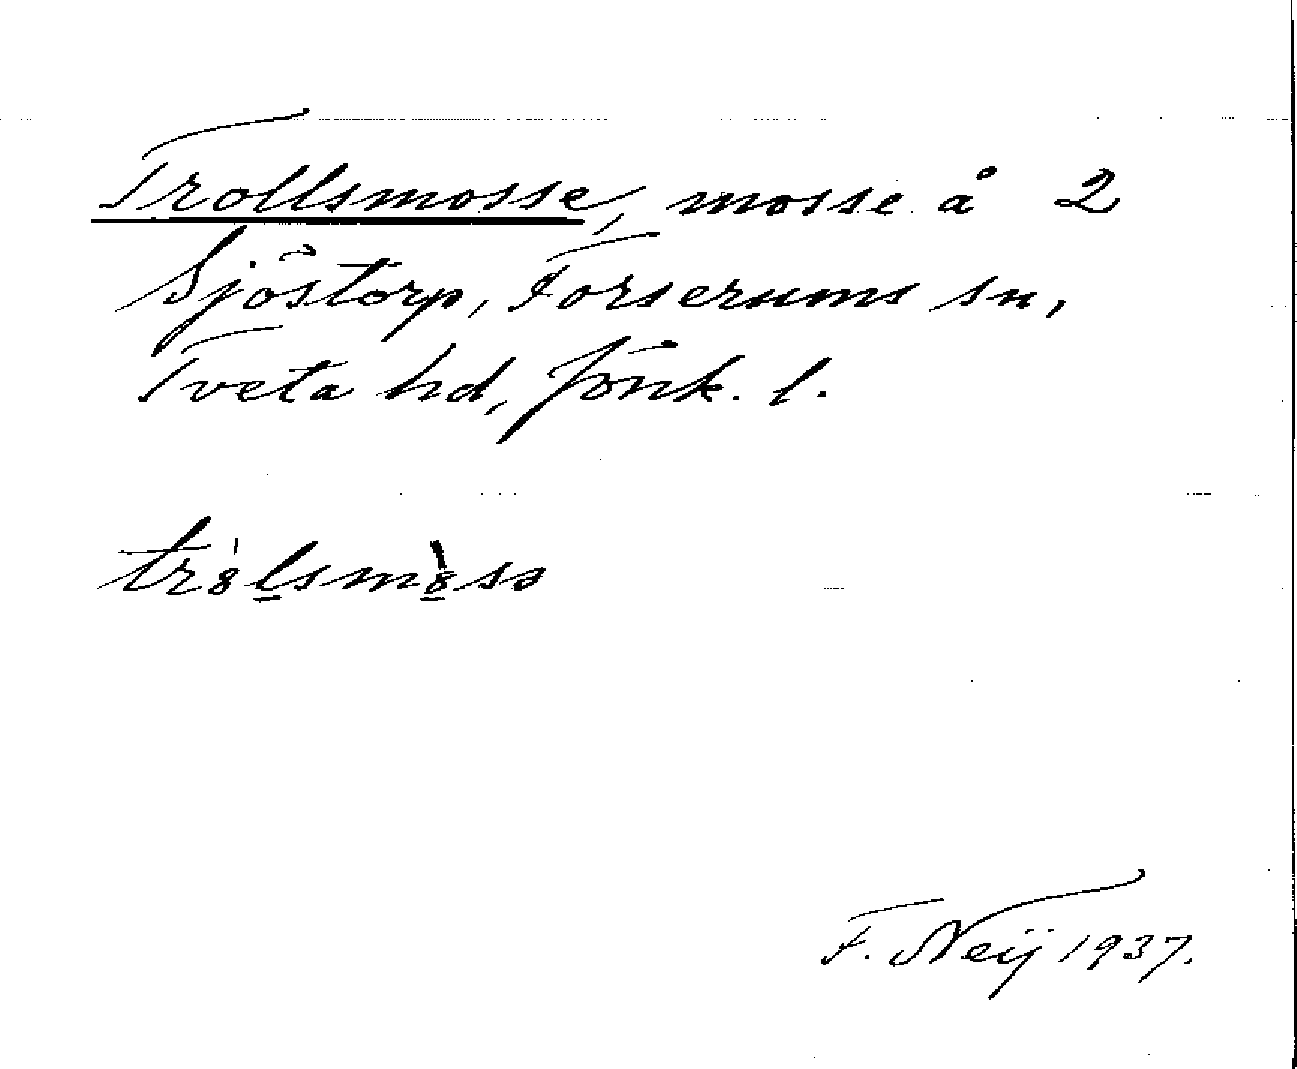 Trollsmosse, mosse å 2
Sjöstorp, Forserums sn,
Tveta hd, Jönk. l.
F. Neij 1937.